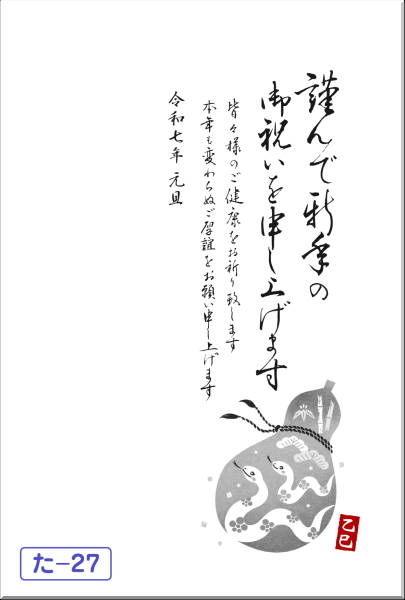 謹んで新年の
御祝いを申し上げます
皆々様のご健康をお祈り致します
本年も変わらぬご厚誼をお願い申し上げます
令和七年 元旦
乙巳
た-27